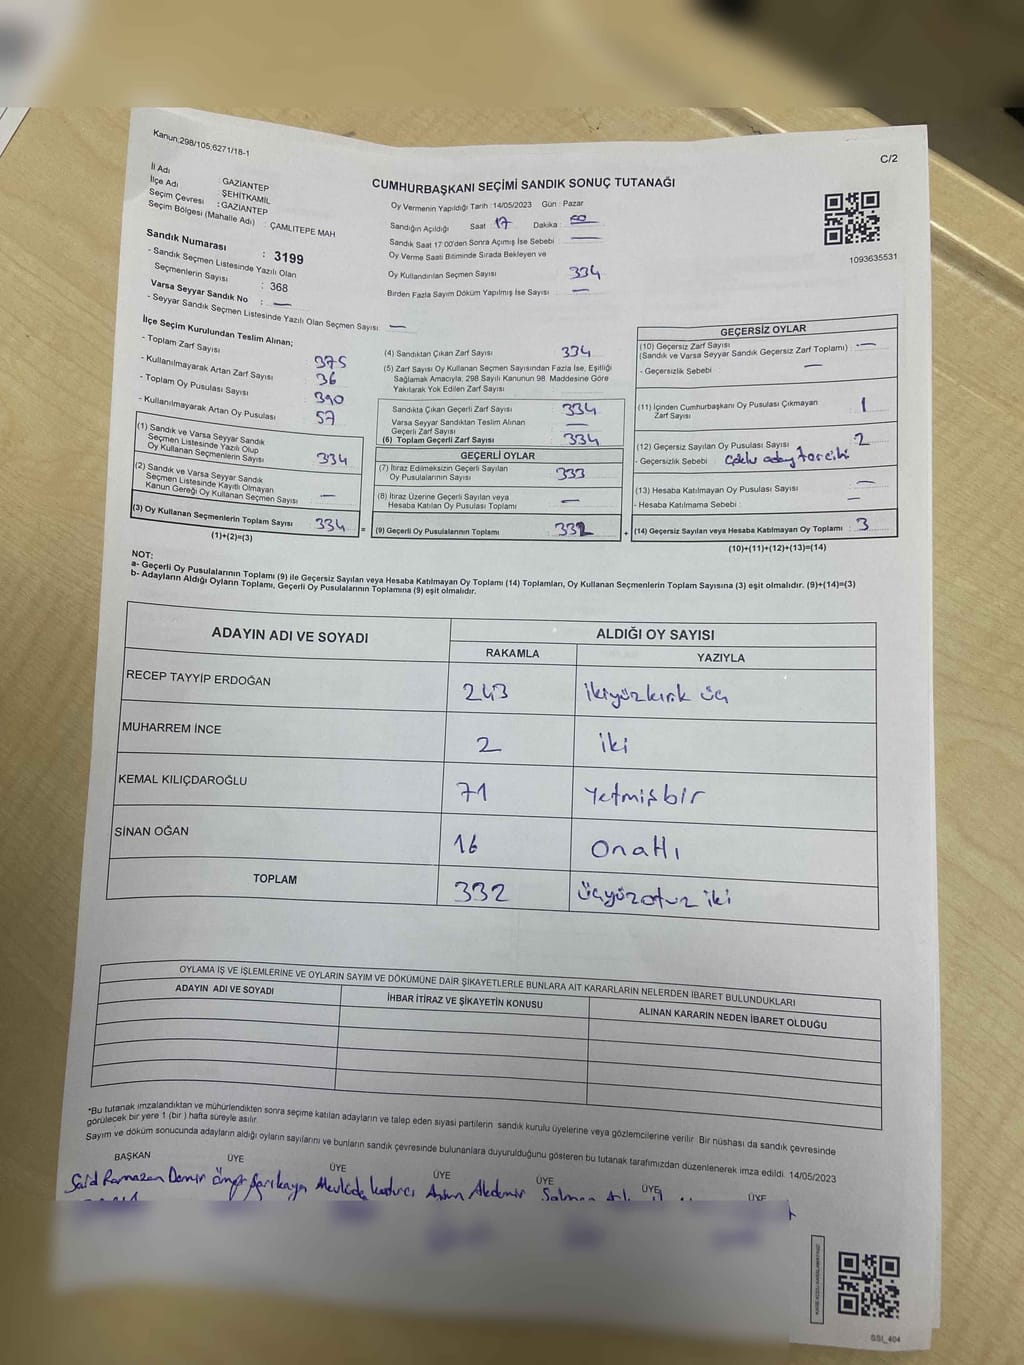 Kanun:298/105,6271/18-1
C/2
İl Adı : GAZİANTEP
İlçe Adı : ŞEHİTKAMİL
Seçim Çevresi : GAZİANTEP
Seçim Bölgesi (Mahalle Adı) : ÇAMLITEPE MAH
CUMHURBAŞKANI SEÇİMİ SANDIK SONUÇ TUTANAĞI
Oy Vermenin Yapıldığı Tarih :14/05/2023 Gün : Pazar
Sandığın Açıldığı Saat : 17 Dakika : 50
Sandık Saat 17:00'den Sonra Açımış İse Sebebi : —
Oy Verme Saati Bitiminde Sırada Bekleyen ve
Oy Kullandırılan Seçmen Sayısı : 334
Birden Fazla Sayım Döküm Yapılmış İse Sayısı : —
1093635531
Sandık Numarası : 3199
- Sandık Seçmen Listesinde Yazılı Olan
Seçmenlerin Sayısı : 368
Varsa Seyyar Sandık No : —
- Seyyar Sandık Seçmen Listesinde Yazılı Olan Seçmen Sayısı : —
İlçe Seçim Kurulundan Teslim Alınan;
- Toplam Zarf Sayısı : 375
- Kullanılmayarak Artan Zarf Sayısı : 36
- Toplam Oy Pusulası Sayısı : 390
- Kullanılmayarak Artan Oy Pusulası : 57
(1) Sandık ve Varsa Seyyar Sandık
Seçmen Listesinde Yazılı Olup
Oy Kullanan Seçmenlerin Sayısı : 334
(2) Sandık ve Varsa Seyyar Sandık
Seçmen Listesinde Kayıtlı Olmayan
Kanun Gereği Oy Kullanan Seçmen Sayısı : —
(3) Oy Kullanan Seçmenlerin Toplam Sayısı : 334 =
(1)+(2)=(3)
(4) Sandıktan Çıkan Zarf Sayısı : 334
(5) Zarf Sayısı Oy Kullanan Seçmen Sayısından Fazla İse, Eşitliği
Sağlamak Amacıyla; 298 Sayılı Kanunun 98. Maddesine Göre
Yakılarak Yok Edilen Zarf Sayısı :
Sandıkta Çıkan Geçerli Zarf Sayısı : 334
Varsa Seyyar Sandıktan Teslim Alınan
Geçerli Zarf Sayısı : —
(6) Toplam Geçerli Zarf Sayısı : 334
GEÇERLİ OYLAR
(7) İtiraz Edilmeksizin Geçerli Sayılan
Oy Pusulalarının Sayısı : 333
(8) İtiraz Üzerine Geçerli Sayılan veya
Hesaba Katılan Oy Pusulası Toplamı : —
(9) Geçerli Oy Pusulalarının Toplamı : 332 +
GEÇERSİZ OYLAR
(10) Geçersiz Zarf Sayısı : —
(Sandık ve Varsa Seyyar Sandık Geçersiz Zarf Toplamı)
- Geçersizlik Sebebi : —
(11) İçinden Cumhurbaşkanı Oy Pusulası Çıkmayan
Zarf Sayısı : 1
(12) Geçersiz Sayılan Oy Pusulası Sayısı : 2
- Geçersizlik Sebebi : Çoklu aday tercihi
(13) Hesaba Katılmayan Oy Pusulası Sayısı : —
- Hesaba Katılmama Sebebi : —
(14) Geçersiz Sayılan veya Hesaba Katılmayan Oy Toplamı : 3
(10)+(11)+(12)+(13)=(14)
NOT:
a- Geçerli Oy Pusulalarının Toplamı (9) ile Geçersiz Sayılan veya Hesaba Katılmayan Oy Toplamı (14) Toplamları, Oy Kullanan Seçmenlerin Toplam Sayısına (3) eşit olmalıdır. (9)+(14)=(3)
b- Adayların Aldığı Oyların Toplamı, Geçerli Oy Pusulalarının Toplamına (9) eşit olmalıdır.
ADAYIN ADI VE SOYADI
ALDIĞI OY SAYISI
RAKAMLA YAZIYLA
RECEP TAYYİP ERDOĞAN 243 ikiyüzkırk üç
MUHARREM İNCE 2 iki
KEMAL KILIÇDAROĞLU 71 Yetmişbir
SİNAN OĞAN 16 onaltı
TOPLAM 332 üçyüzotuz iki
OYLAMA İŞ VE İŞLEMLERİNE VE OYLARIN SAYIM VE DÖKÜMÜNE DAİR ŞİKAYETLERLE BUNLARA AİT KARARLARIN NELERDEN İBARET BULUNDUKLARI
ADAYIN ADI VE SOYADI İHBAR İTİRAZ VE ŞİKAYETİN KONUSU ALINAN KARARIN NEDEN İBARET OLDUĞU
*Bu tutanak imzalandıktan ve mühürlendikten sonra seçime katılan adayların ve talep eden siyasi partilerin sandık kurulu üyelerine veya gözlemcilerine verilir. Bir nüshası da sandık çevresinde
görülecek bir yere 1 (bir ) hafta süreyle asılır.
Sayım ve döküm sonucunda adayların aldığı oyların sayılarını ve bunların sandık çevresinde bulunanlara duyurulduğunu gösteren bu tutanak tarafımızdan düzenlenerek imza edildi. 14/05/2023
BAŞKAN ÜYE ÜYE ÜYE ÜYE ÜYE ÜYE
Said Ramazan Demir Ömer Sarıkaya Mevlüde Akdemir Salman
SSI_404